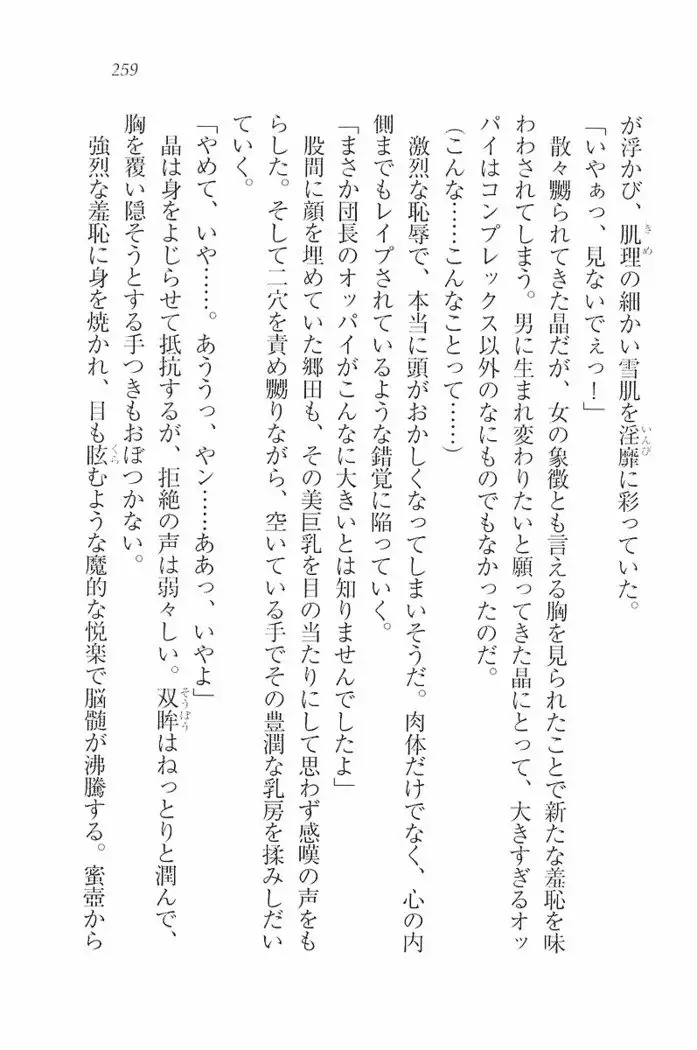 259
が浮かび、肌理の細かい雪肌を淫靡に彩っていた。
「いやぁっ、見ないでぇっ！」
散々嬲られてきた晶だが、女の象徴とも言える胸を見られたことで新たな羞恥を味
わわされてしまう。男に生まれ変わりたいと願ってきた晶にとって、大きすぎるオッ
パイはコンプレックス以外のなにものでもなかったのだ。
（こんな……こんなことって……）
激烈な恥辱で、本当に頭がおかしくなってしまいそうだ。肉体だけでなく、心の内
側までもレイプされているような錯覚に陥っていく。
「まさか団長のオッパイがこんなに大きいとは知りませんでしたよ」
股間に顔を埋めていた郷田も、その美巨乳を目の当たりにして思わず感嘆の声をも
らした。そして二穴を責め嬲りながら、空いている手でその豊潤な乳房を揉みしだい
ていく。
「やめて、いや……。あううっ、やン……ああっ、いやよ」
晶は身をよじらせて抵抗するが、拒絶の声は弱々しい。双眸はねっとりと潤んで、
胸を覆い隠そうとする手つきもおぼつかない。
強烈な羞恥に身を焼かれ、目も眩むような魔的な悦楽で脳髄が沸騰する。蜜壺から
きめ
いんび
そうぼう
くら